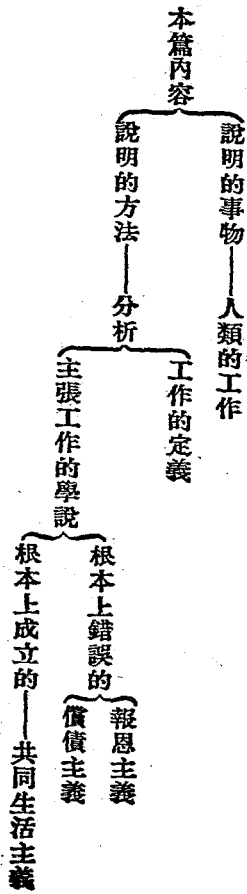 本篇內容
說明的事物——人類的工作
說明的方法——分析
工作的定義
主張工作的學說
根本上錯誤的
報恩主義
償債主義
根本上成立的——共同生活主義